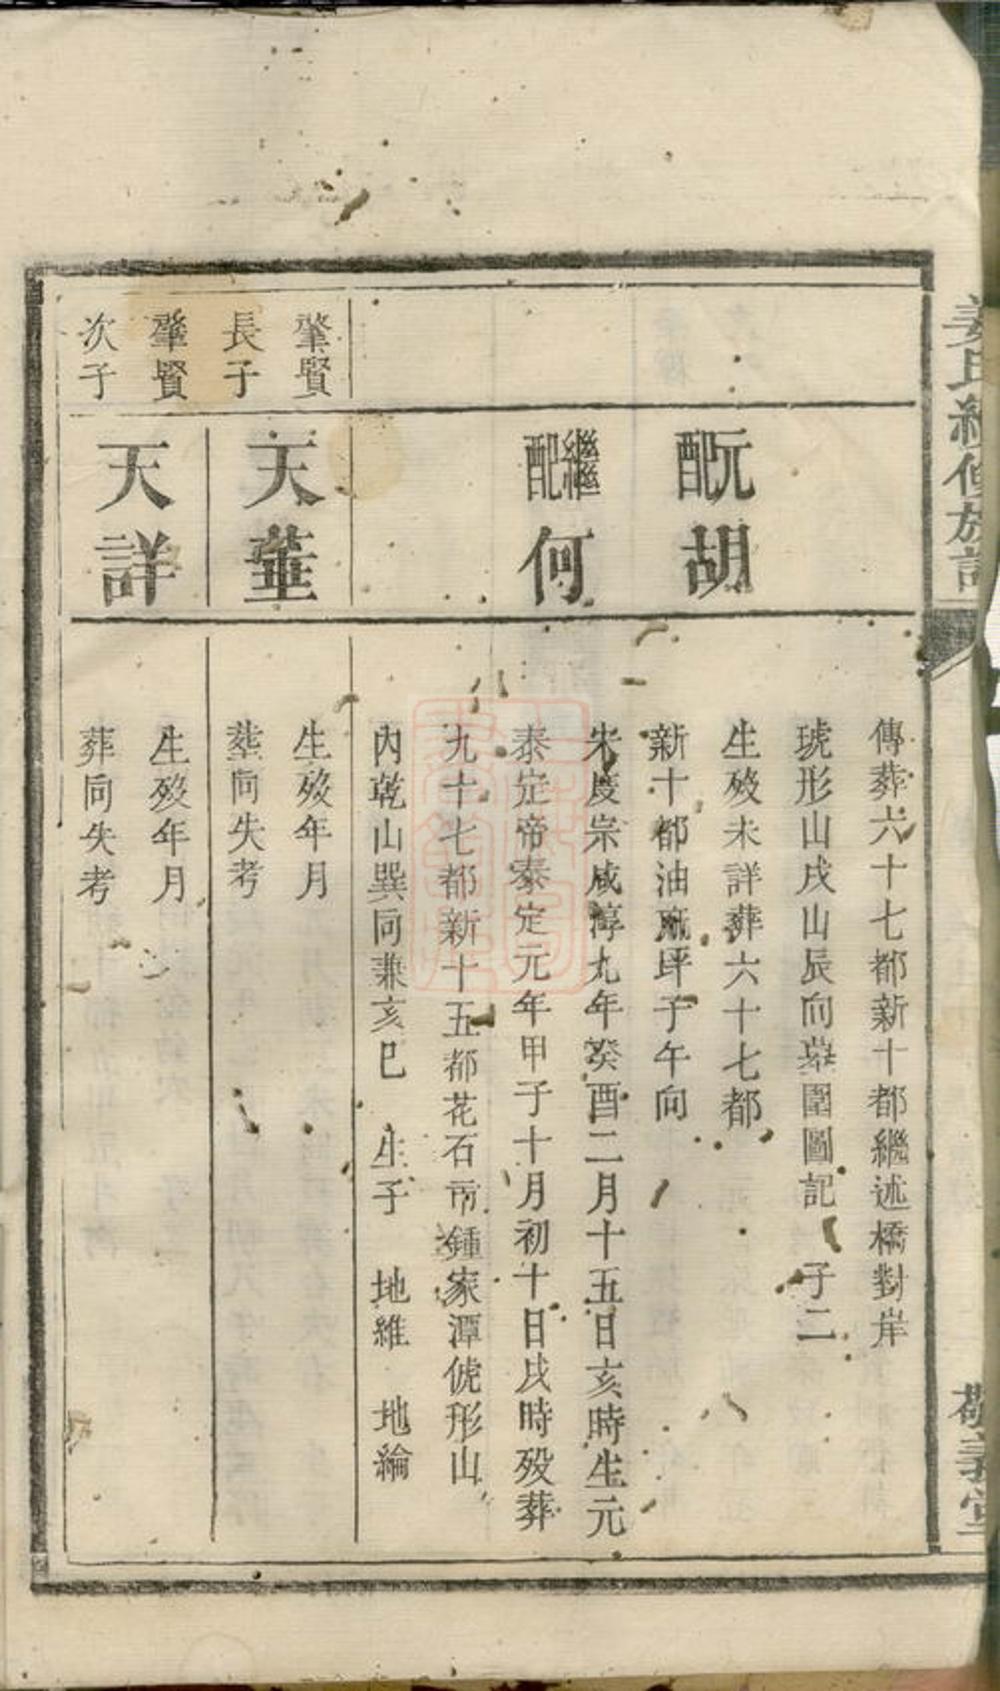 姜氏續修族譜
敬義堂
傳葬六十七都新十都繼述橋對岸
琥形山戌山辰向墓圍圖記 子二
元配
胡
生歿未詳葬六十七都
新十都油蔴坪子午向
繼配
何
宋度宗咸淳九年癸酉二月十五日亥時生元
泰定帝泰定元年甲子十月初十日戌時歿葬
九十七都新十五都花石市鍾家潭俿形山
內乾山巽向兼亥巳 生子 地維 地綸
肇賢
長子
天菫
生歿年月
葬向失考
肇賢
次子
天詳
生歿年月
葬向失考